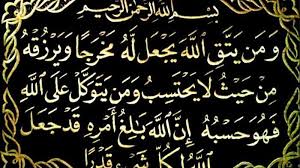 بِسْمِ اللَّهِ الرَّحْمَٰنِ الرَّحِيمِ
وَمَن يَتَّقِ اللَّهَ يَجْعَل لَّهُ مَخْرَجًا وَيَرْزُقْهُ
مِنْ حَيْثُ لَا يَحْتَسِبُ وَمَن يَتَوَكَّلْ عَلَى اللَّهِ
فَهُوَ حَسْبُهُ إِنَّ اللَّهَ بَالِغُ أَمْرِهِ قَدْ جَعَلَ
اللَّهُ لِكُلِّ شَيْءٍ قَدْرًا